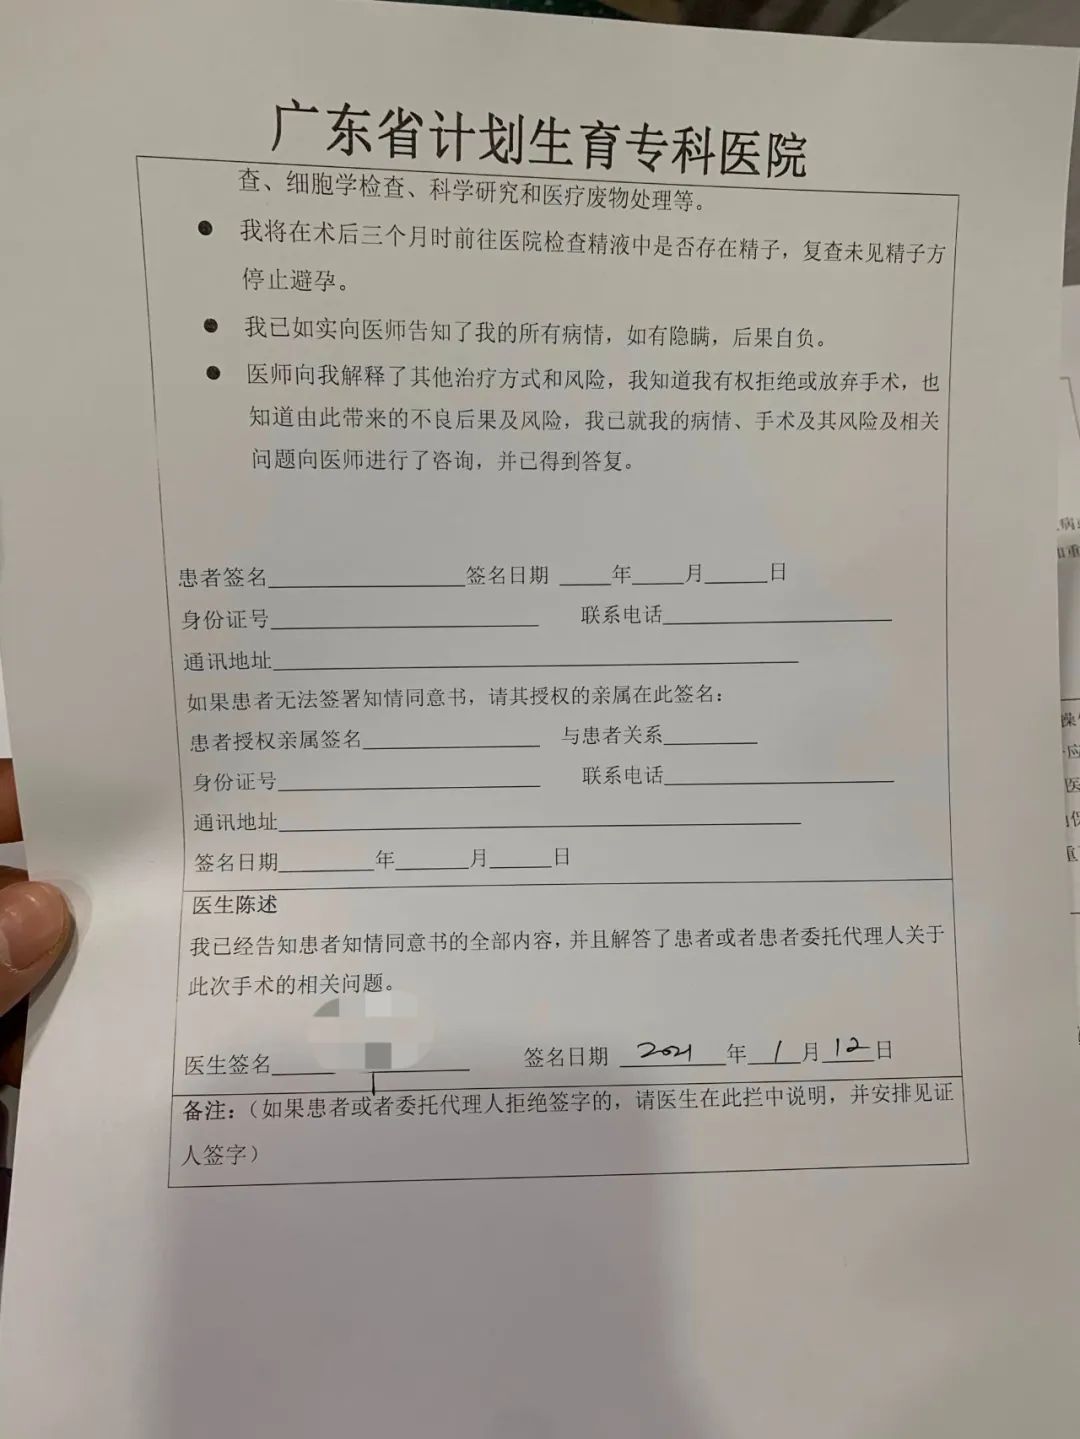 广东省计划生育专科医院
查、细胞学检查、科学研究和医疗废物处理等。
● 我将在术后三个月时前往医院检查精液中是否存在精子，复查未见精子方
停止避孕。
● 我已如实向医师告知了我的所有病情，如有隐瞒，后果自负。
● 医师向我解释了其他治疗方式和风险，我知道我有权拒绝或放弃手术，也
知道由此带来的不良后果及风险，我已就我的病情、手术及其风险及相关
问题向医师进行了咨询，并已得到答复。
患者签名________签名日期 ____年____月____日
身份证号________ 联系电话________
通讯地址________
如果患者无法签署知情同意书，请其授权的亲属在此签名：
患者授权亲属签名________ 与患者关系________
身份证号________ 联系电话________
通讯地址________
签名日期____年____月____日
医生陈述
我已经告知患者知情同意书的全部内容，并且解答了患者或者患者委托代理人关于
此次手术的相关问题。
医生签名________ 签名日期 2021 年 1 月 12 日
备注：（如果患者或者委托代理人拒绝签字的，请医生在此栏中说明，并安排见证
人签字）